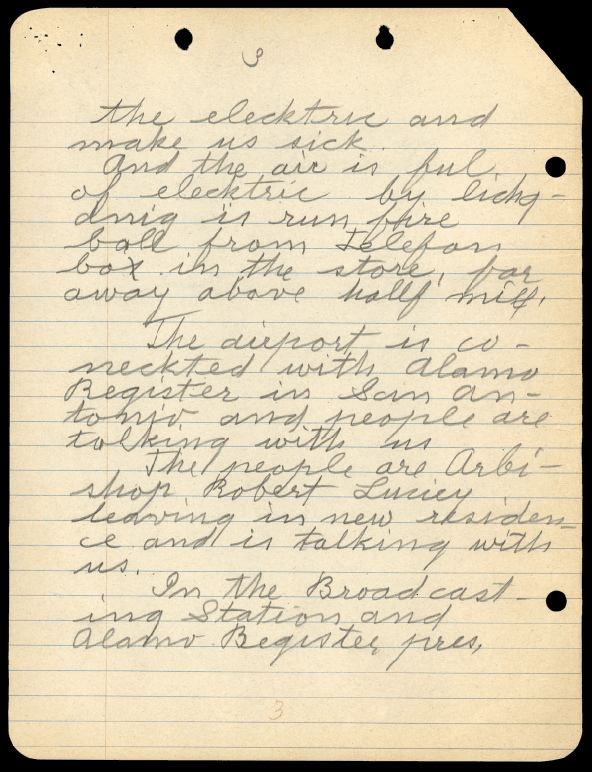 3
the elecktric and
make us sick.
And the air is ful
of elecktric by licht-
dnig is run fire
ball from Telefon
box in the store, far
away above hallf mill,
The airport is co-
neckted with Alamo
Register in San An-
tonjo and people are
talking with us
The people are Arbi-
shop Robert Luciey
leaving in new residen-
ce and is talking with
us.
In the Broadcast-
ing Station and
Alamo Register, pres,
3